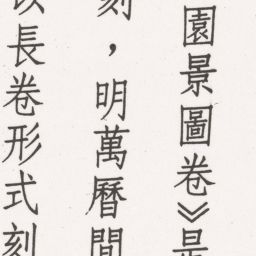 園景圖卷》是
刻，明萬曆間
以長卷形式刻